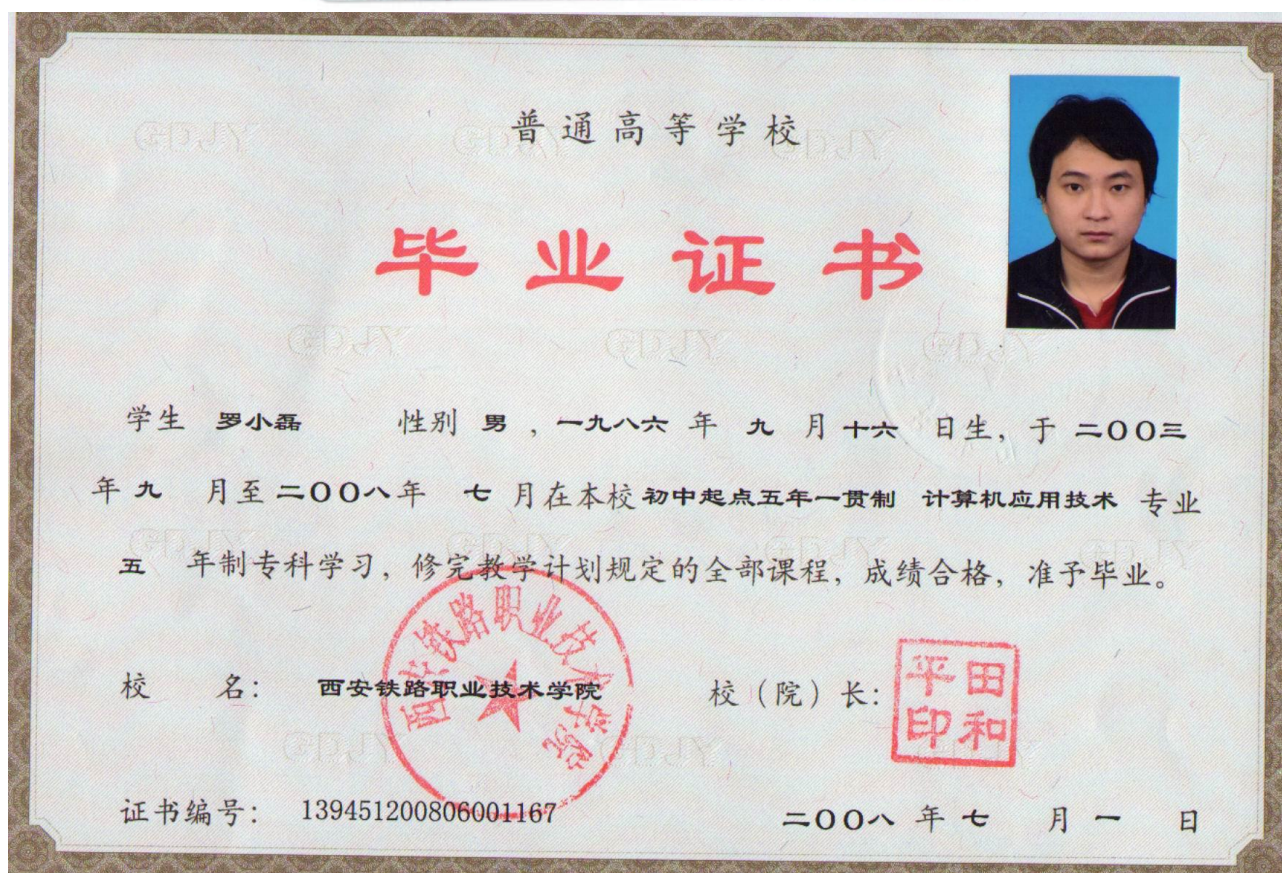 普通高等学校
毕业证书
学生 罗小磊 性别 男 ，一九八六 年 九 月 十六 日生，于 二〇〇三
年 九 月至 二〇〇八 年 七 月在本校 初中起点五年一贯制 计算机应用技术 专业
五 年制专科学习，修完教学计划规定的全部课程，成绩合格，准予毕业。
西安铁路职业技术学院
校 名： 西安铁路职业技术学院 校（院）长： 田和平印
证书编号： 139451200806001167 二〇〇八 年 七 月 一 日